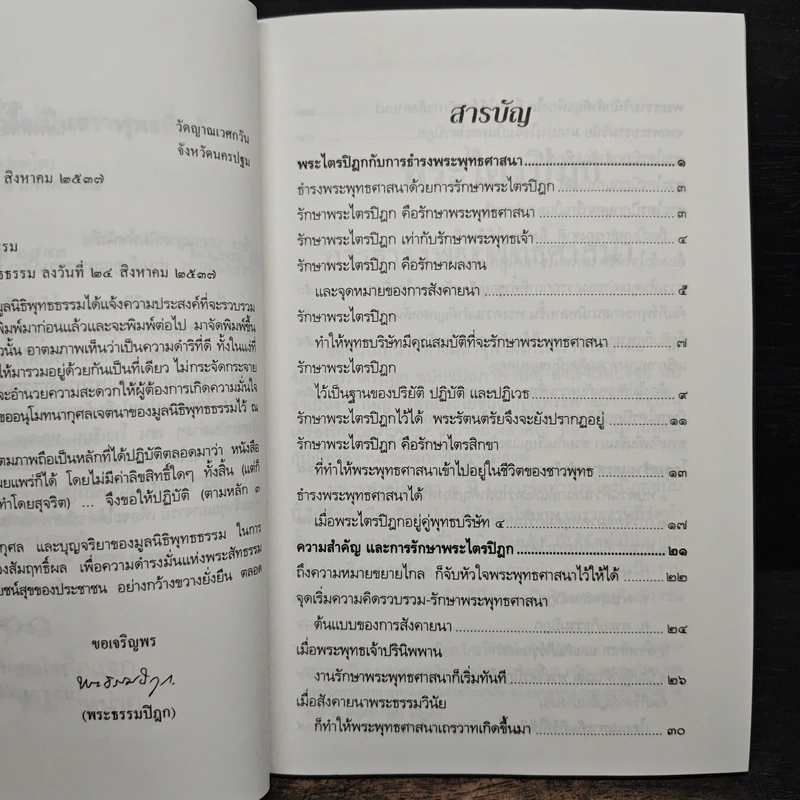 วัดญาณเวศกวัน
จังหวัดนครปฐม
สิงหาคม ๒๕๓๗
รรม
ธธรรม ลงวันที่ ๒๔ สิงหาคม ๒๕๓๗
มูลนิธิพุทธธรรมได้แจ้งความประสงค์ที่จะรวบรวม
พิมพ์มาก่อนแล้วและจะพิมพ์ต่อไป มาจัดพิมพ์ขึ้น
วนั้น อาตมภาพเห็นว่าเป็นความดำริที่ดี ทั้งในแง่ที่
ให้มารวมอยู่ด้วยกันเป็นที่เดียว ไม่กระจัดกระจาย
จะอำนวยความสะดวกให้ผู้ต้องการเกิดความมั่นใจ
ขออนุโมทนากุศลเจตนาของมูลนิธิพุทธธรรมไว้ ณ
ตมภาพถือเป็นหลักที่ได้ปฏิบัติตลอดมาว่า หนังสือ
ผยแพร่ก็ได้ โดยไม่มีค่าลิขสิทธิ์ใดๆ ทั้งสิ้น (แต่ก็
ทำโดยสุจริต) ... จึงขอให้ปฏิบัติ (ตามหลัก ๓
กุศล และบุญจริยาของมูลนิธิพุทธธรรม ในการ
องสัมฤทธิ์ผล เพื่อความดำรงมั่นแห่งพระสัทธรรม
ยชน์สุขของประชาชน อย่างกว้างขวางยั่งยืน ตลอด
ขอเจริญพร
พระธรรมปิฎก.
(พระธรรมปิฎก)
สารบัญ
พระไตรปิฎกกับการธำรงพระพุทธศาสนา ๑
ธำรงพระพุทธศาสนาด้วยการรักษาพระไตรปิฎก ๓
รักษาพระไตรปิฎก คือรักษาพระพุทธศาสนา ๓
รักษาพระไตรปิฎก เท่ากับรักษาพระพุทธเจ้า ๔
รักษาพระไตรปิฎก คือรักษาผลงาน
และจุดหมายของการสังคายนา ๕
รักษาพระไตรปิฎก
ทำให้พุทธบริษัทมีคุณสมบัติที่จะรักษาพระศาสนา ๗
รักษาพระไตรปิฎก
ไว้เป็นฐานของปริยัติ ปฏิบัติ และปฏิเวธ ๙
รักษาพระไตรปิฎกไว้ได้ พระรัตนตรัยจึงจะยังปรากฏอยู่ ๑๑
รักษาพระไตรปิฎก คือรักษาไตรสิกขา
ที่ทำให้พระพุทธศาสนาเข้าไปอยู่ในชีวิตของชาวพุทธ ๑๓
ธำรงพระพุทธศาสนาได้
เมื่อพระไตรปิฎกอยู่คู่พุทธบริษัท ๔ ๑๗
ความสำคัญ และการรักษาพระไตรปิฎก ๒๑
ถึงความหมายขยายไกล ก็จับหัวใจพระพุทธศาสนาไว้ให้ได้ ๒๒
จุดเริ่มความคิดรวบรวม-รักษาพระพุทธศาสนา
ต้นแบบของการสังคายนา ๒๔
เมื่อพระพุทธเจ้าปรินิพพาน
งานรักษาพระพุทธศาสนาก็เริ่มทันที ๒๖
เมื่อสังคายนาพระธรรมวินัย
ก็ทำให้พระพุทธศาสนาเถรวาทเกิดขึ้นมา ๓๐